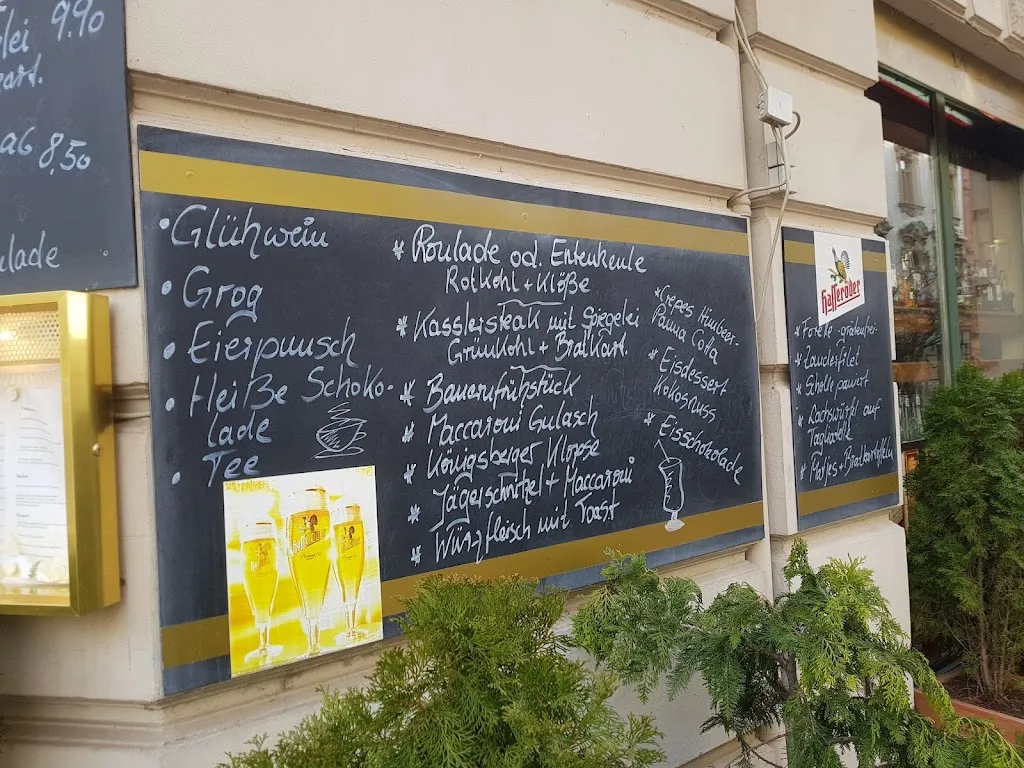 9.90
ab 8,50
• Glühwein
• Grog
• Eierpunsch
• Heiße Schoko-
lade
• Tee
* Roulade od. Entenkeule
Rotkohl + Klöße
* Kasslersteak mit Spiegelei
Grünkohl + Bratkart.
* Bauernfrühstück
* Maccaroni Gulasch
* Königsberger Klopse
* Jägerschnitzel + Maccaroni
* Würzfleisch mit Toast
* Crepes Himbeer-
Panna Cota
* Eisdessert
Kokosnuss
* Eisschokolade
Hasseröder
* Forelle -grätenfrei-
* Zanderfilet
* Scholle paniert
* Lachswürfel auf
Tagliatelle
* Matjes + Bratkartoffeln